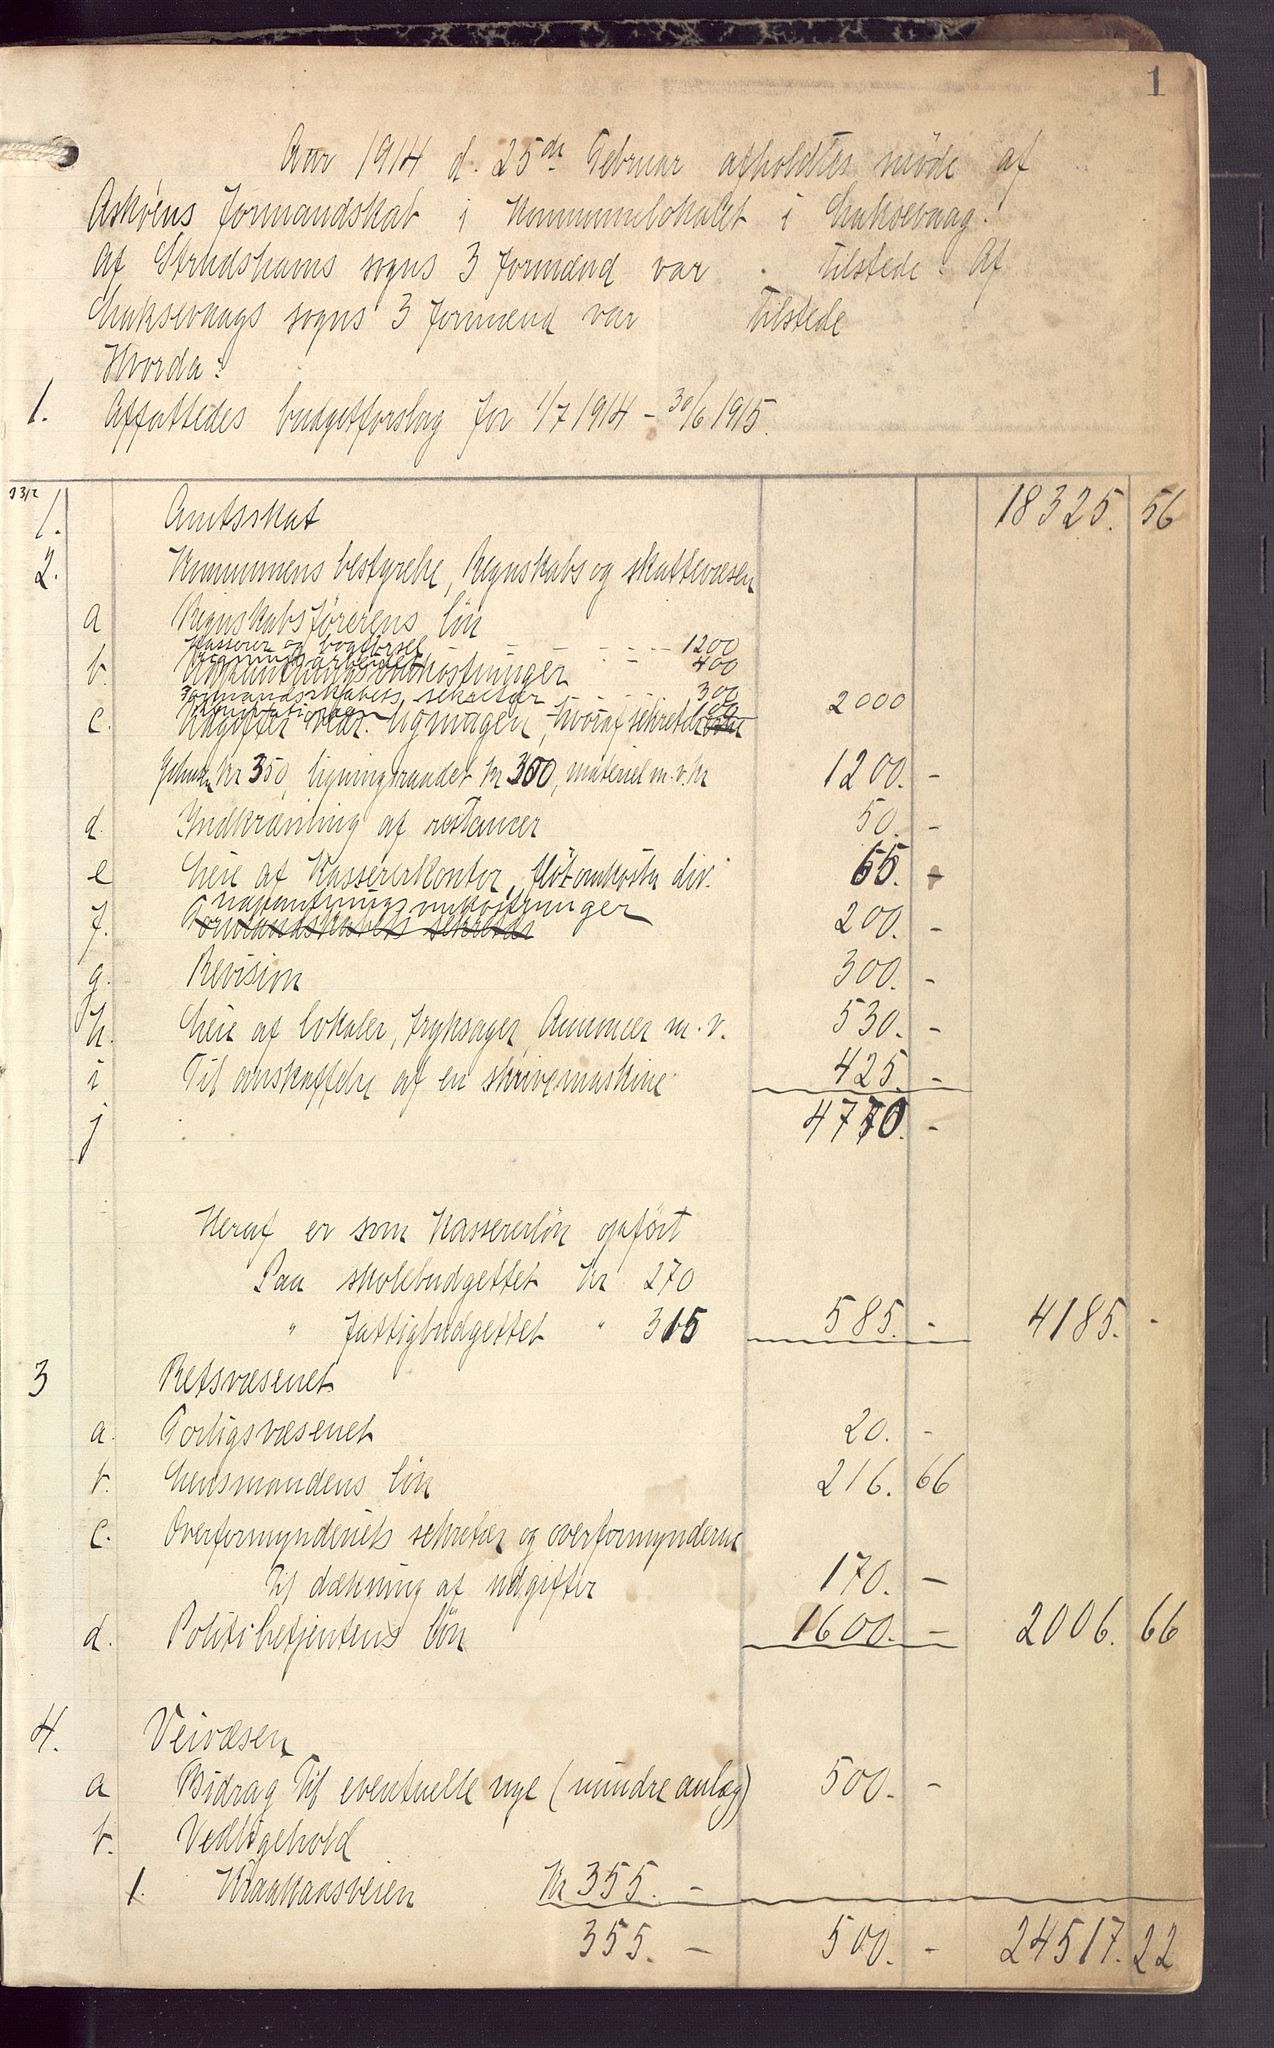 1
Aar 1914 d. 25de Februar afholdtes møde af
Askøens formandskab i Kommunelokalet i Laksevaag.
Af Strudshavns sogns 3 formænd var tilstede. Af
Laksevaags sogns 3 formænd var tilstede
Hvorda:
1. Affattedes budgetforslag for 1/7 1914 - 30/6 1915.
1. Amtsskat 18325. 56
2. Kommunens bestyrelse, Regnskabs og skattevæsen
a Regnskabsførerens løn
Kasserer og bogførsel 1200
b. 400
Formandsskabets sekretær 300
2000
c. Udgifter vedr. ligningen, hvoraf sekretær
Kr 350, ligningsraadet Kr 350, materiel m.v. Kr 1200. -
d. Indkrævning af restancer 50. -
e Leie af Kassererkontor, div. 65. -
f. Udpantningsomkostninger 200. -
Formandsskabets sekretær
g. Revision 300. -
h. Leie af lokaler, tryksager, Annoncer m.v. 530. -
i Til anskaffelse af en skrivemaskine 425. -
j 4770. -
Heraf er som Kassererløn opført
Paa skolebudgettet Kr 270
" fattigbudgettet " 315 585. - 4185. -
3 Retsvæsenet
a. Forligsvæsenet 20. -
b. Lensmandens løn 216. 66
c. Overformynderiets sekretær og overformynderne
til dækning af udgifter 170. -
d. Politibetjentens løn 1600. - 2006. 66
4. Veivæsen
a Bidrag til eventuelle nye (mindre anlæg) 500. -
b. Vedligehold
1. Kraakaasveien Kr 355. -
355. - 500. - 24517. 22